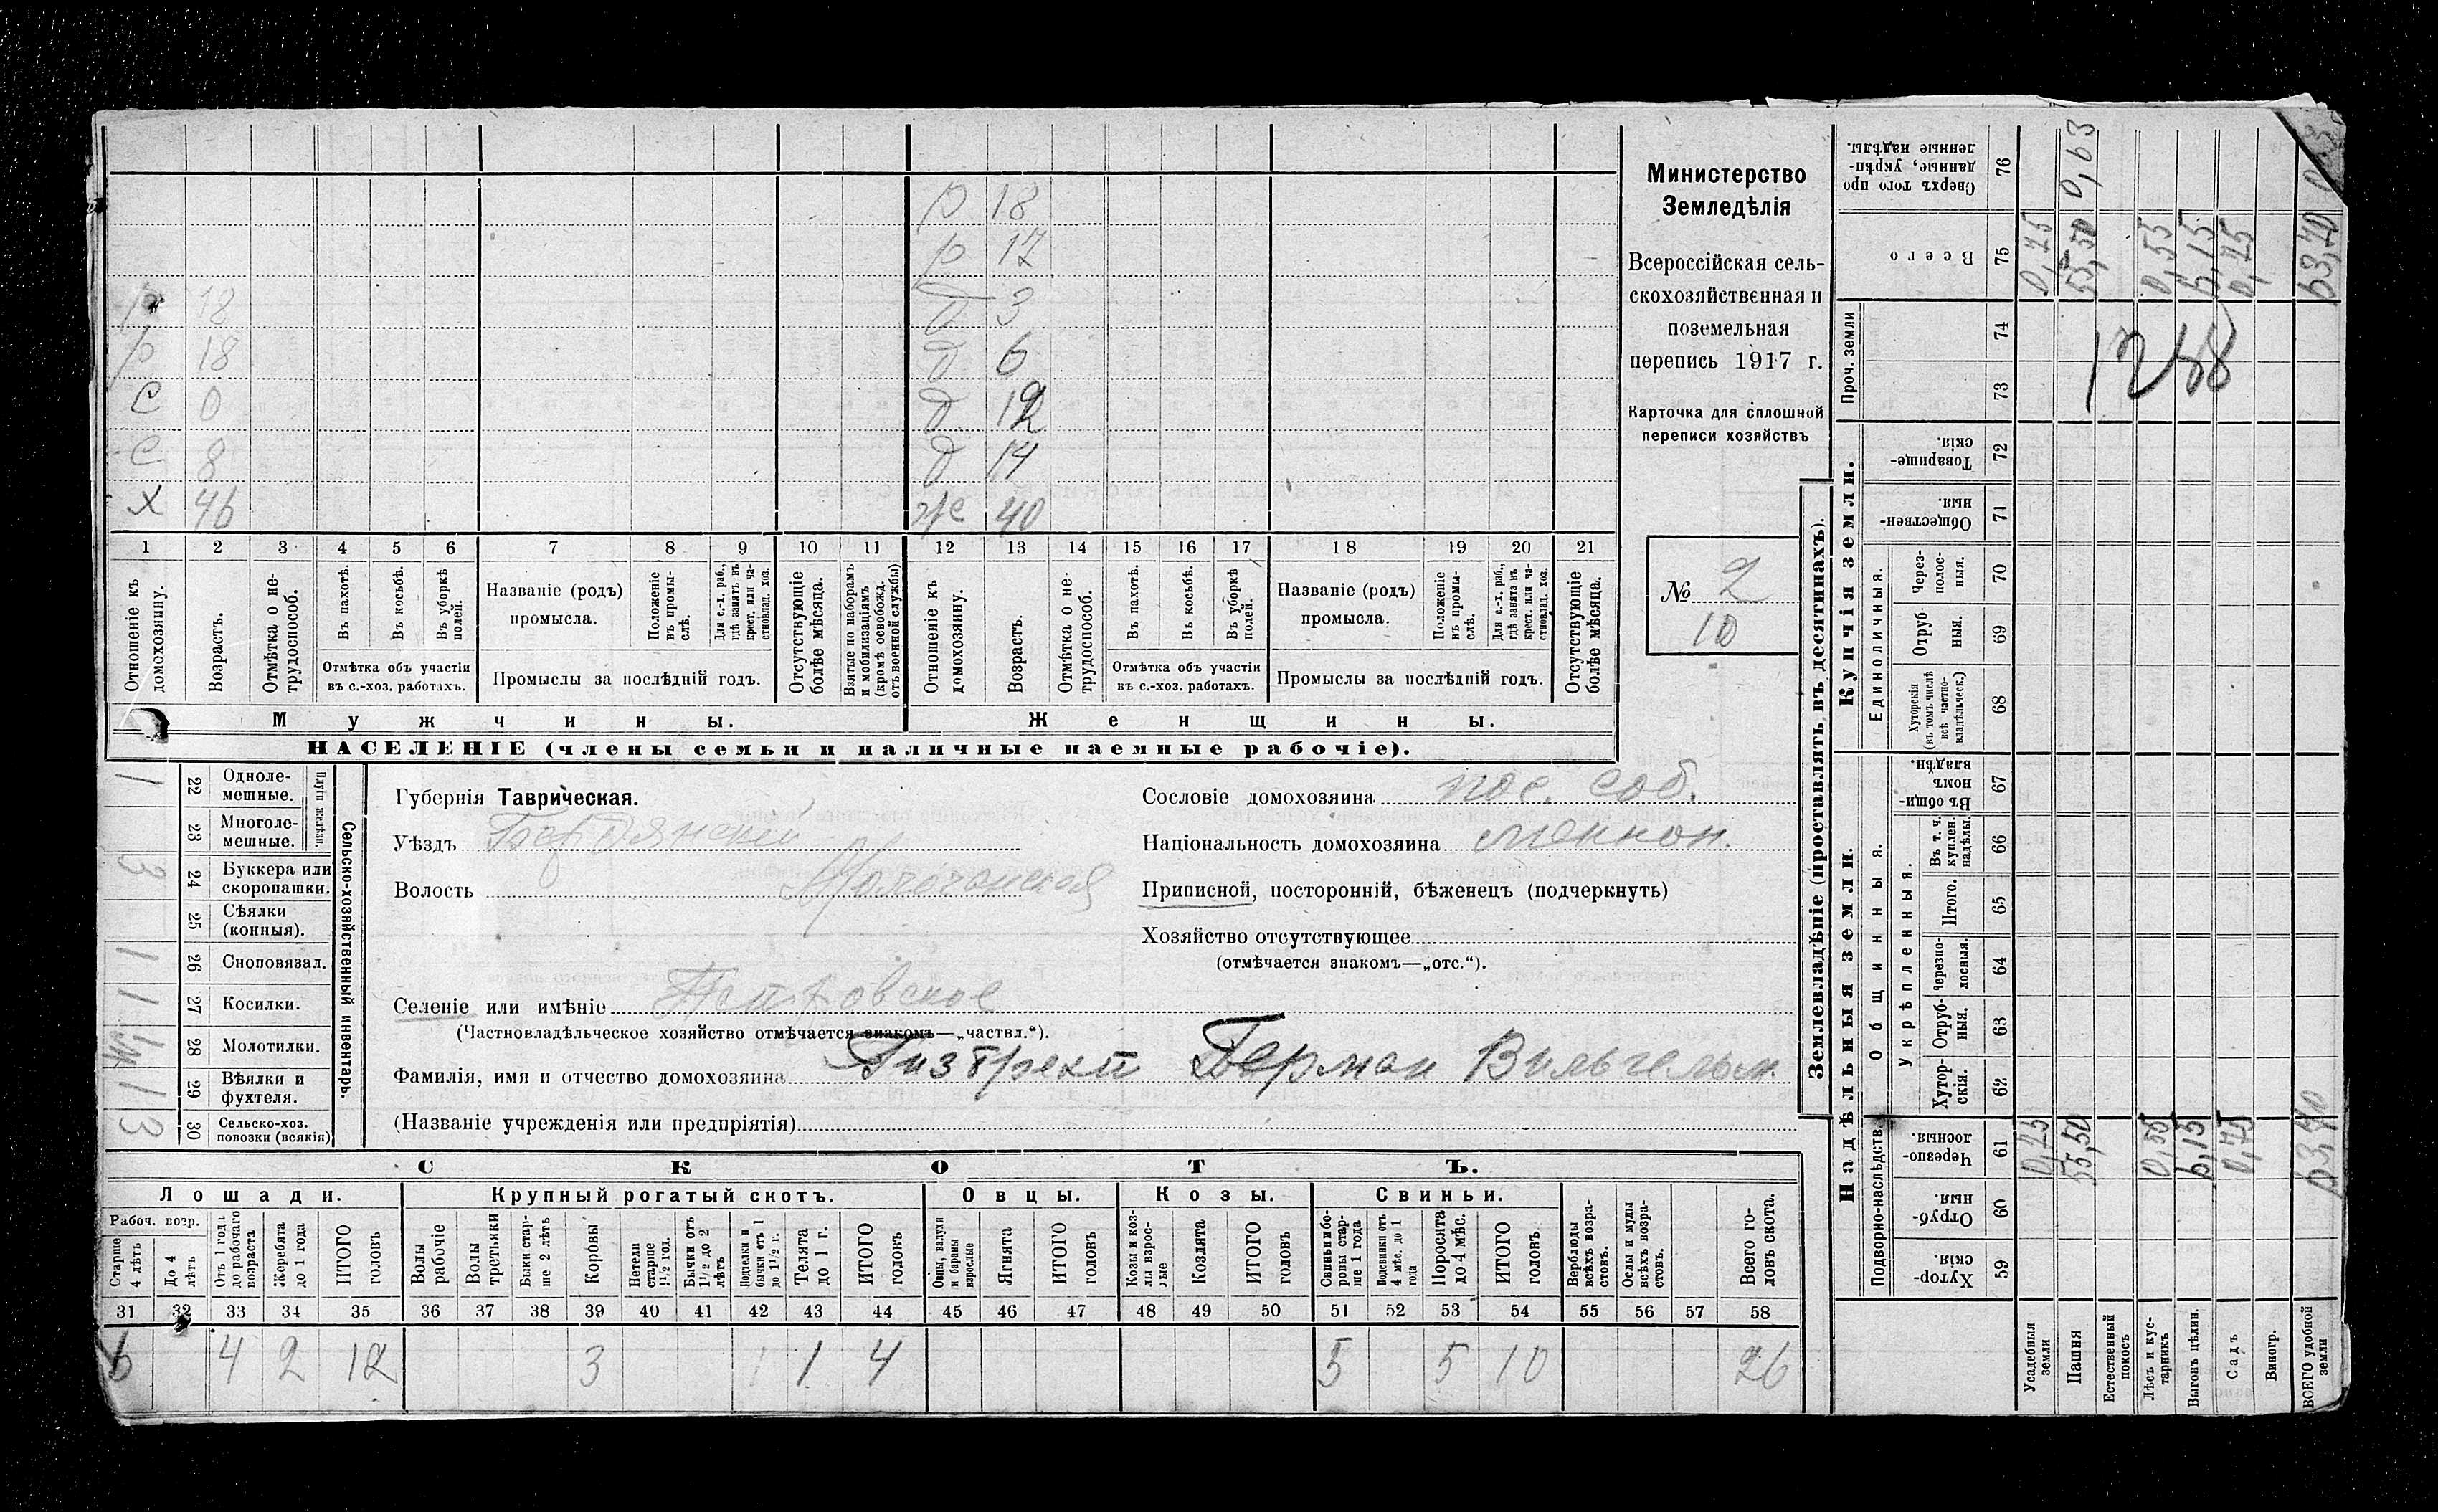 р 18
р 17
р 18 д 3
р 18 д 6
с 0 д 12
с 8 д 14
х 46 же 40
1 2 3 4 5 6 7 8 9 10 11 12 13 14 15 16 17 18 19 20 21
Отношеніе къ домохозяину.
Возрастъ.
Отмѣтка о не-трудоспособ.
Въ пахотѣ.
Въ косьбѣ.
Въ уборкѣ полей.
Отмѣтка объ участіи
въ с.-хоз. работахъ.
Названіе (родъ)
промысла.
Положеніе въ промы-слѣ.
Для с.-х. раб., гдѣ занятъ въ крест. или ча-стновлад. хоз.
Промыслы за послѣдній годъ.
Отсутствующіе болѣе мѣсяца.
Взятые по наборамъ и мобилизаціямъ (кромѣ освобожд. отъ военной службы)
Отношеніе къ домохозяину.
Возрастъ.
Отмѣтка о не-трудоспособ.
Въ пахотѣ.
Въ косьбѣ.
Въ уборкѣ полей.
Отмѣтка объ участіи
въ с.-хоз. работахъ.
Названіе (родъ)
промысла.
Положеніе въ промы-слѣ.
Для с.-х. раб., гдѣ занята въ крест. или ча-стновлад. хоз.
Промыслы за послѣдній годъ.
Отсутствующіе болѣе мѣсяца.
Мужчины. Женщины.
НАСЕЛЕНІЕ (члены семьи и наличные наемные рабочіе).
Министерство
Земледѣлія
Всероссійская сель-
скохозяйственная и
поземельная
перепись 1917 г.
Карточка для сплошной
переписи хозяйствъ
№ 2
10
1 22 Однолемешные.
23 Многолемешные.
Плуги желѣзн.
3 24 Буккера или скоропашки.
25 Сѣялки (конныя).
1 26 Сноповязал.
1 27 Косилки.
28 Молотилки.
1 29 Вѣялки и фухтеля.
3 30 Сельско-хоз. повозки (всякія)
Сельско-хозяйственный инвентарь.
Губернія Таврическая.
Уѣздъ Бердянскій
Волость Молочанская
Селеніе или имѣніе Петровское
(Частновладѣльческое хозяйство отмѣчается знакомъ—„частвл.“).
Сословіе домохозяина пос. соб.
Національность домохозяина меннон.
Приписной, посторонній, бѣженецъ (подчеркнуть)
Хозяйство отсутствующее
(отмѣчается знакомъ—„отс.“).
Фамилія, имя и отчество домохозяина Гизбрехт Герман Вильгельм
(Названіе учрежденія или предпріятія)
СКОТЪ.
Лошади. Крупный рогатый скотъ. Овцы. Козы. Свиньи.
Рабоч. возр.
Старше 4 лѣтъ
До 4 лѣтъ
Отъ 1 года до рабочаго возраста
Жеребята до 1 года
ИТОГО головъ
Волы рабочіе
Волы третьяки
Быки стар-ше 2 лѣтъ
Коровы
Нетели старше 1½ год.
Бычки отъ 1½ до 2 лѣтъ
Подтелки и бычки отъ 1 до 1½ г.
Телята до 1 г.
ИТОГО головъ
Овцы, валухи и бараны взрослые
Ягнята
ИТОГО головъ
Козы и коз-лы взрос-лые
Козлята
ИТОГО головъ
Свиньи бо-ровы стар-ше 1 года
Подсвинки отъ 4 мѣс. до 1 года
Поросята до 4 мѣс.
ИТОГО головъ
Верблюды всѣхъ возра-стовъ.
Ослы и мулы всѣхъ возра-стовъ.
Всего го-ловъ скота.
31 32 33 34 35 36 37 38 39 40 41 42 43 44 45 46 47 48 49 50 51 52 53 54 55 56 57 58
6 4 2 12 3 1 4 5 5 10 26
Землевладѣніе (проставлять въ десятинахъ).
Надѣльныя земли. Купчія земли. Проч. земли
Подворно-наслѣдств. Общинныя. Укрѣпленныя. Единоличныя.
59 Хутор-скія.
60 Отруб-ныя.
61 Черезпо-лосныя.
62 Хутор-скія.
63 Отруб-ныя.
64 Черезпо-лосныя.
65 Итого.
66 Въ т. ч. куплен. надѣлы.
67 Въ общи-номъ владѣн.
68 Хуторскія (въ томъ числѣ всѣ частно-владѣльческ.)
69 Отруб-ныя.
70 Через-полос-ныя.
71 Обществен-ныя.
72 Товарище-скія.
73
74
75 Всего
76 Сверхъ того про данные, укрѣп-ленные надѣлы.
Усадебныя земли 0,25 0,25
Пашня 55,50 55,50 0,63
Естественный покосъ
Лѣсъ и кус-тарникъ 0,55 0,55
Выгонъ цѣлин. 6,15 6,15
Садъ 0,75 0,75
Виногр.
ВСЕГО удобной земли 63,20 63,20